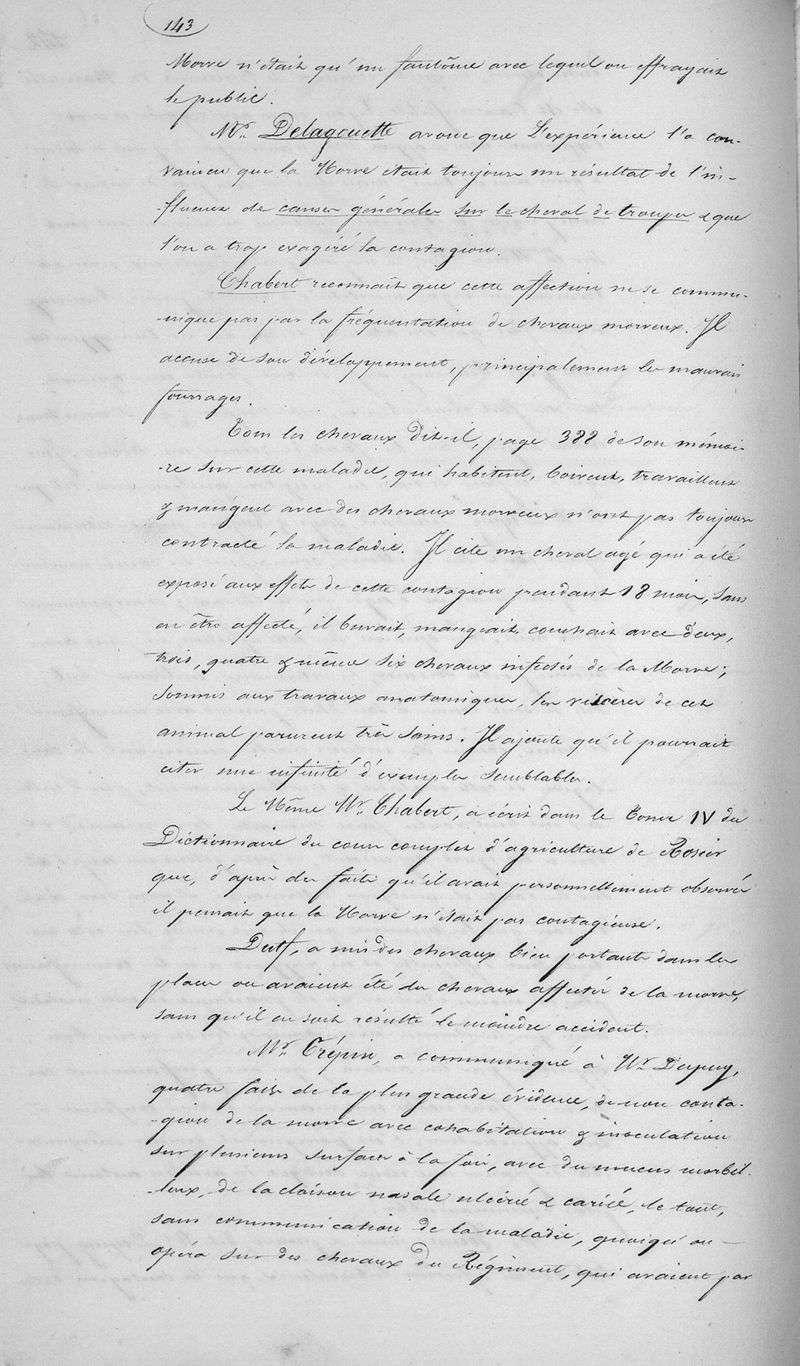 143
Morve n'était qu'un fantôme avec lequel on effrayait
le public.
Mr. Delaguette avoue que L'expérience l'a con-
vaincu que la Morve était toujours un résultat de l'in-
fluence de causes générales sur le cheval de troupes & que
l'on a trop exagéré la contagion.
Chabert reconnaît que cette affection ne se commu-
nique pas par la fréquentation de chevaux morveux. Il
accuse de son développement, principalement les mauvais
fourrages.
Tous les chevaux dit-il, page 388 de son mémoi-
re sur cette maladie, qui habitent, boivent, travaillent
& mangent avec des chevaux morveux n'ont pas toujours
contracté la maladie. Il cite un cheval agé qui a été
exposé aux effets de cette contagion pendant 18 mois, sans
en être affecté, il buvait, mangeait couchait avec deux,
trois, quatre & même six chevaux infectés de la Morve;
Soumis aux travaux anatomiques, les viscères de cet
animal parurent très sains. Il ajoute qu'il pourrait
citer une infinité d'exemples semblables.
Le Même Mr. Chabert, a écrit dans le Tome IV du
Dictionnaire du cours complet d'agriculture de Rosier
que, d'après des faits qu'il avait personnellement observés
il pensait que la Morve n'était pas contagieuse.
a mis des chevaux bien portants dans les
places ou avaient été des chevaux affectés de la morve,
sans qu'il en soit résulté le moindre accident.
Mr. Crépin, a communiqué à Mr. Dupuy,
quatre faits de la plus grande évidence, de non conta-
-gion de la morve avec cohabitation & inoculation
sur plusieurs surfaces à la fois, avec du mucus morbil-
-leux, de la cloison nasale ulcérée & cariée, le tout,
sans communication de la maladie, quoiqu'on
opéra sur des chevaux du Régiment, qui avaient par